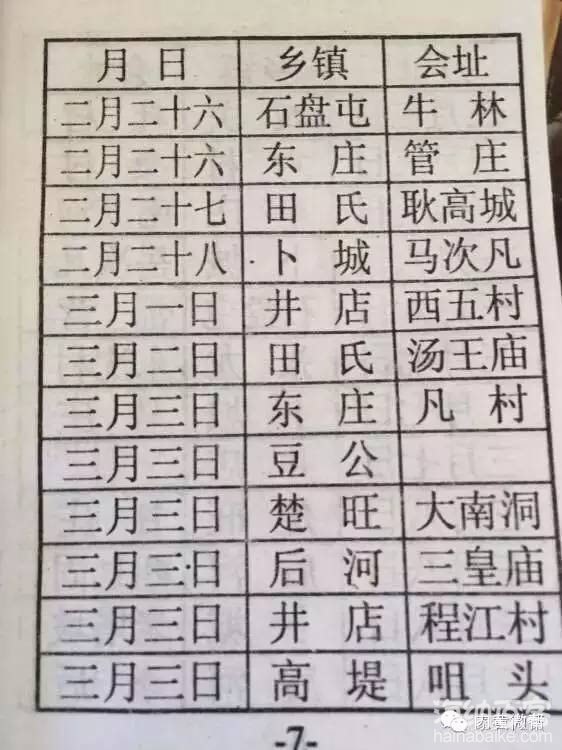 月 日 乡镇 会址
二月二十六 石盘屯 牛 林
二月二十六 东 庄 管 庄
二月二十七 田 氏 耿高城
二月二十八 卜 城 马次凡
三月一日 井 店 西五村
三月二日 田 氏 汤王庙
三月三日 东 庄 凡 村
三月三日 豆 公
三月三日 楚 旺 大南洞
三月三日 后 河 三皇庙
三月三日 井 店 程江村
三月三日 高 堤 咀 头
-7-
hainabaike.com